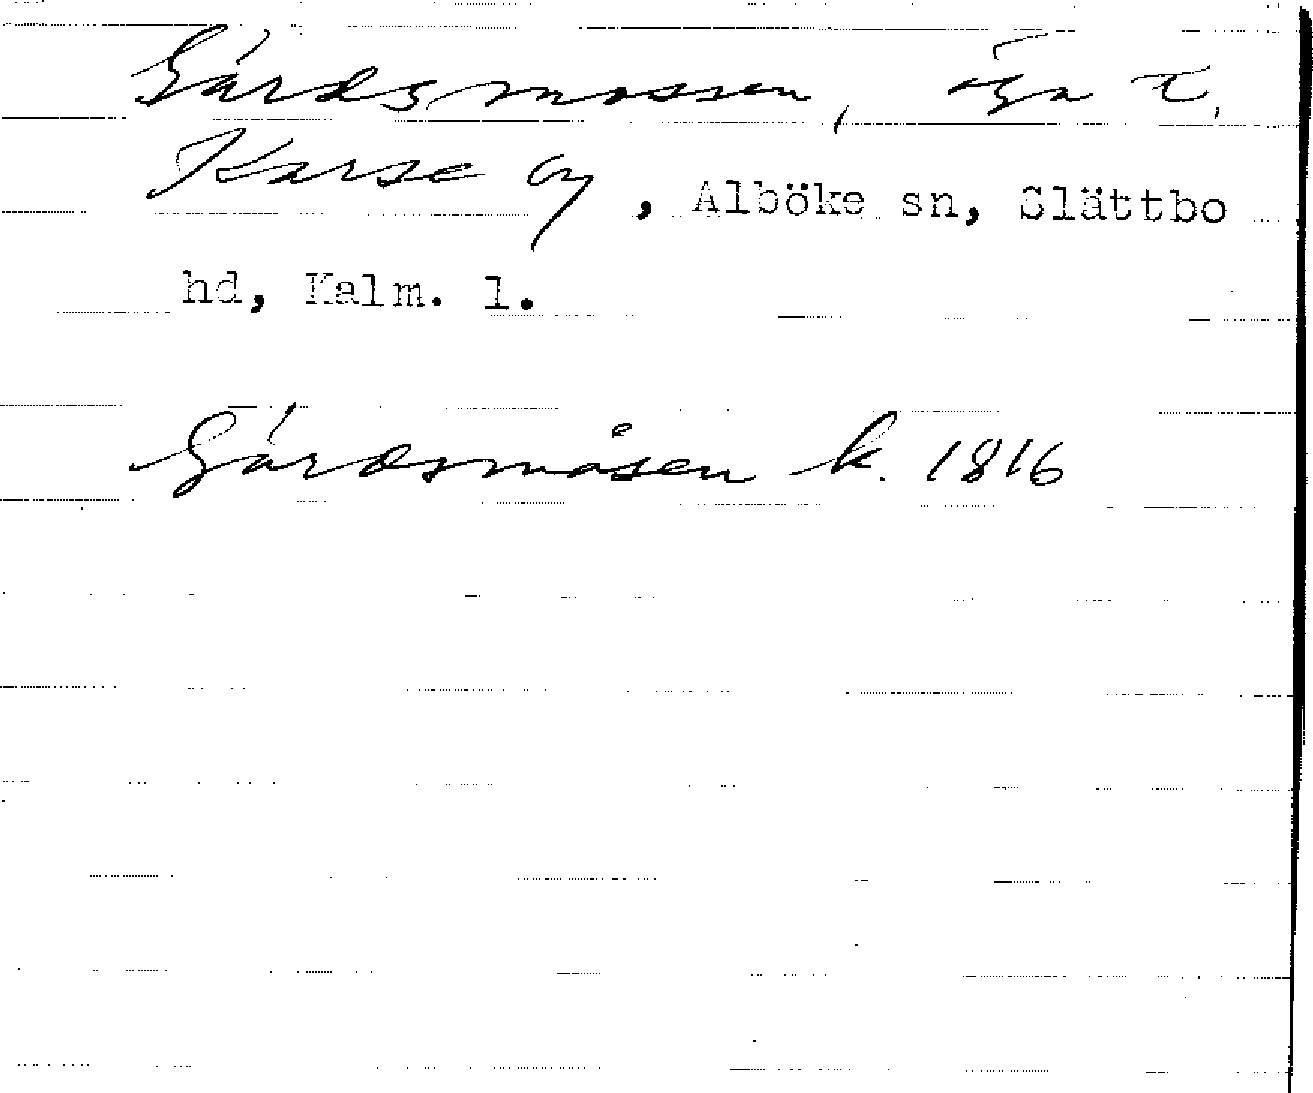 Gårdsmossen, äga t.
Karse by, Alböke sn, Slättbo
hd, Kalm. l.
Gårdsmåsen k. 1816